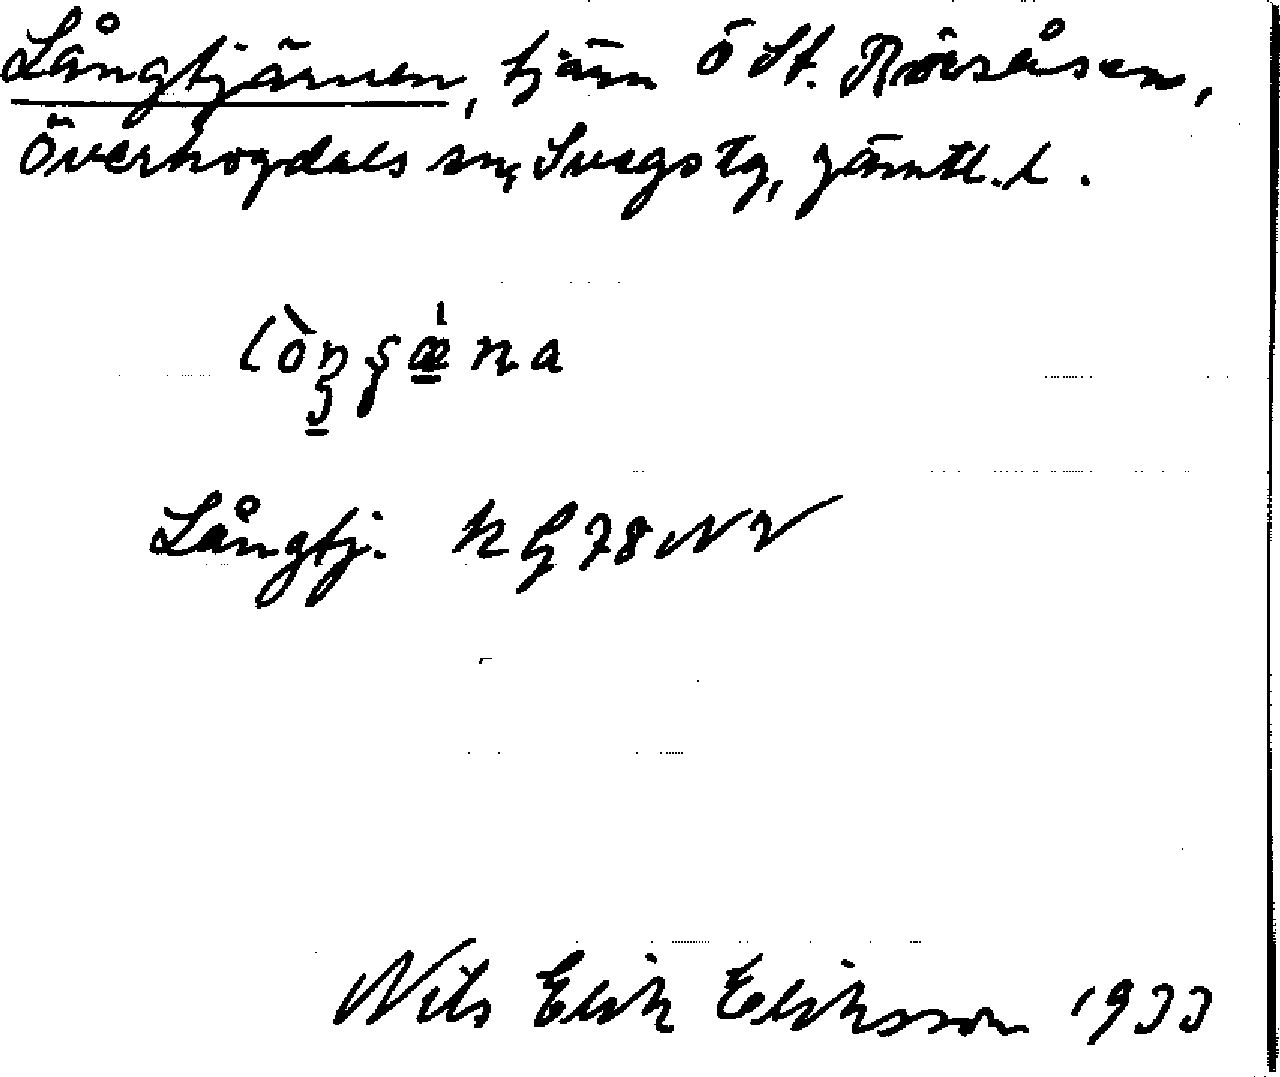 Långtjärnen, tjärn Ö St. Rörsåsen,
Överhogdals sn, Svegs tg, Jämtl. l.
Långtj. kg 78 NV
Nils Erik Eriksson 1933